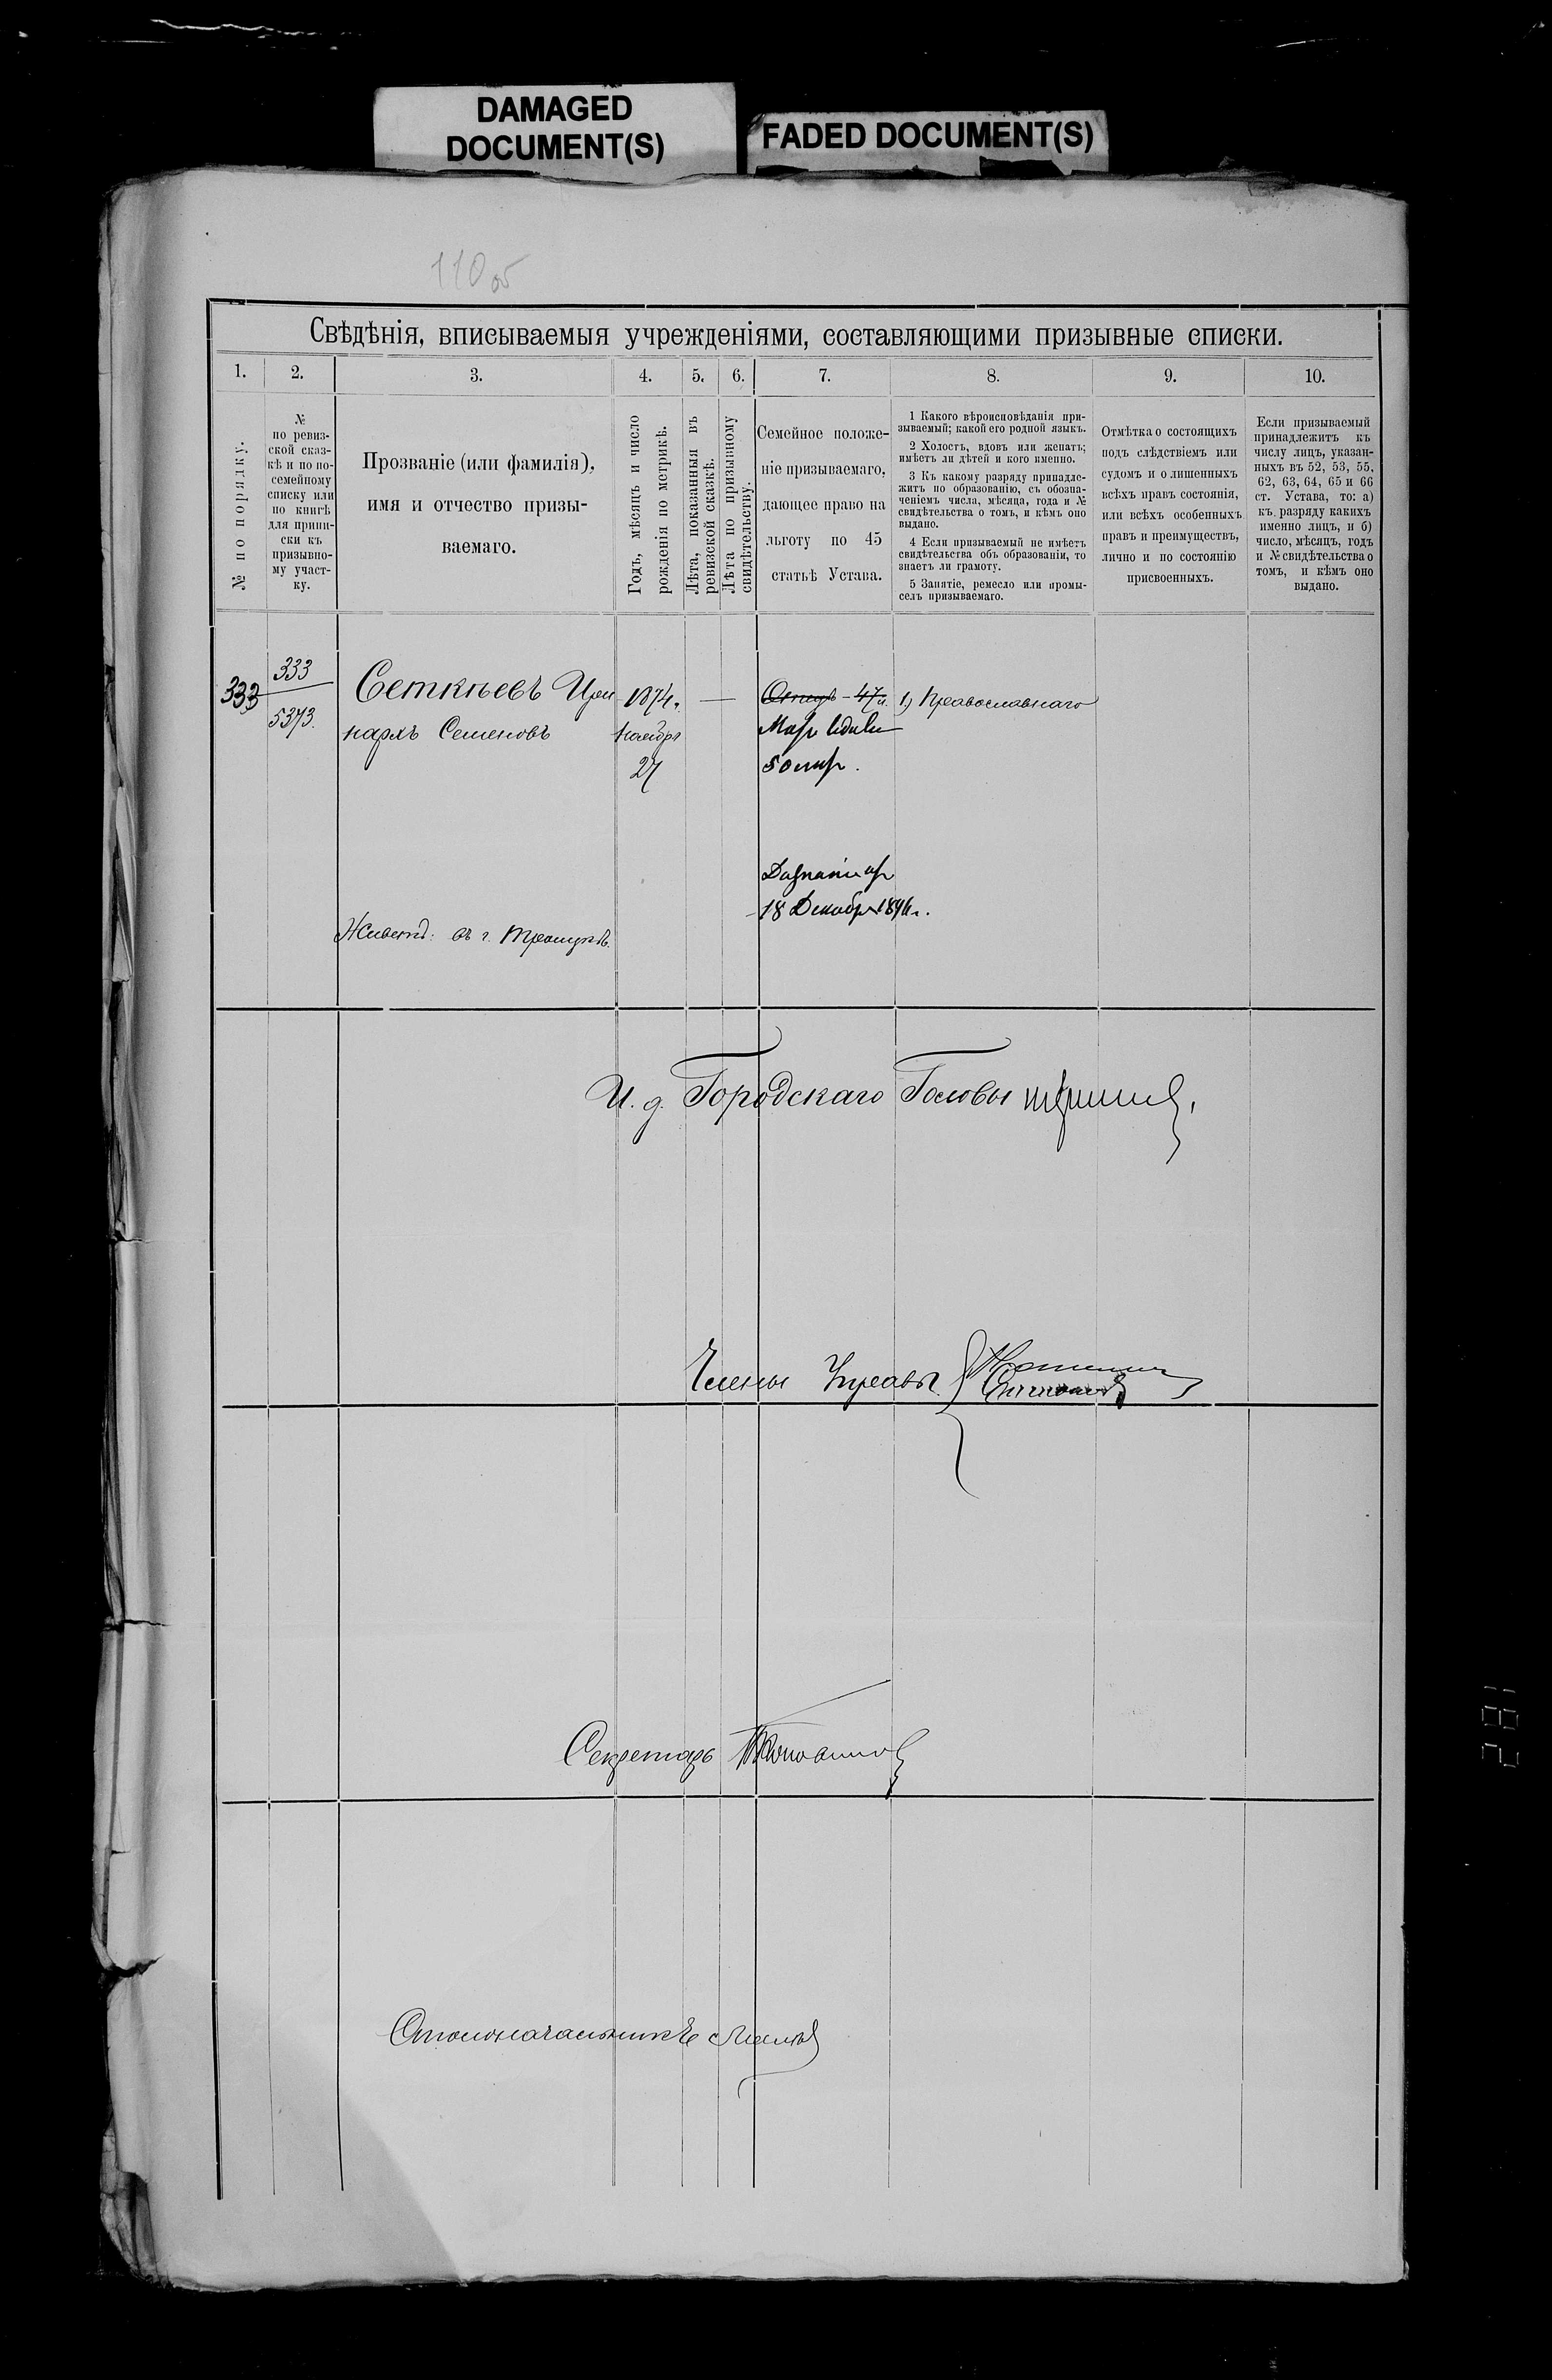 DAMAGED
DOCUMENT(S)
FADED DOCUMENT(S)
110 об
Свѣдѣнія, вписываемыя учрежденіями, составляющими призывные списки.
1.
2.
3.
4.
5.
6.
7.
8.
9.
10.
№ по порядку.
№
по ревиз-
ской сказ-
кѣ и по по-
семейному
списку или
по книгѣ
для припи-
ски къ
призывно-
му участ-
ку.
Прозваніе (или фамилія),
имя и отчество призы-
ваемаго.
Годъ, мѣсяцъ и число
рожденія по метрикѣ.
Лѣта, показанныя въ
ревизской сказкѣ.
Лѣта по призывному
свидѣтельству.
Семейное положе-
ніе призываемаго,
дающее право на
льготу по 45
статьѣ Устава.
1 Какого вѣроисповѣданія при-
зываемый; какой его родной языкъ.
2 Холостъ, вдовъ или женатъ;
имѣетъ ли дѣтей и кого именно.
3 Къ какому разряду принадле-
житъ по образованію, съ обозна-
ченіемъ числа, мѣсяца, года и №
свидѣтельства о томъ, и кѣмъ оно
выдано.
4 Если призываемый не имѣетъ
свидѣтельства объ образованіи, то
знаетъ ли грамоту.
5 Занятіе, ремесло или промы-
селъ призываемаго.
Отмѣтка о состоящихъ
подъ слѣдствіемъ или
судомъ и о лишенныхъ
всѣхъ правъ состоянія,
или всѣхъ особенныхъ
правъ и преимуществъ,
лично и по состоянію
присвоенныхъ.
Если призываемый
принадлежитъ къ
числу лицъ, указан-
ныхъ въ 52, 53, 55,
62, 63, 64, 65 и 66
ст. Устава, то: а)
къ разряду какихъ
именно лицъ, и б)
число, мѣсяцъ, годъ
и № свидѣтельства о
томъ, и кѣмъ оно
выдано.
333
333
5373.
Сеткѣевъ Ири
нархъ Семеновъ
1874 г.
Ноября
27
Отецъ - 47 л.
50
1) Православнаго
18 Декабря 1896 г.
Живетъ: въ г. Троицкѣ.
И. д. Городскаго Головы
Члены Управы
Секретарь
Столоначальникъ
182